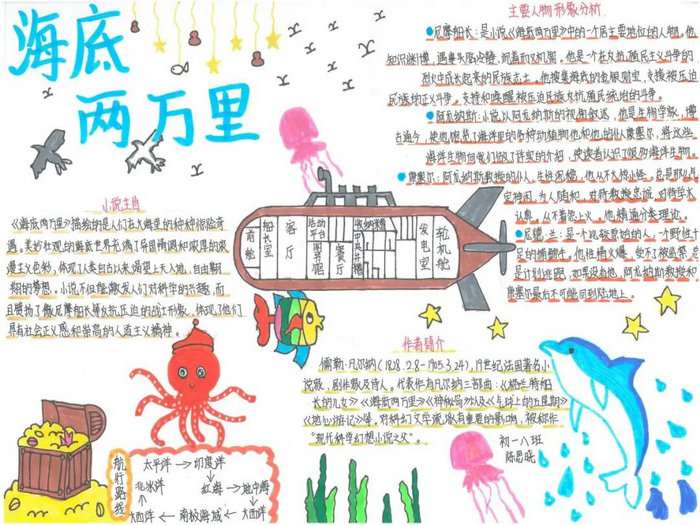 海底
两万里
小说主旨
《海底两万里》描绘的是人们在大海里的种种惊险奇
遇。美妙壮观的海底世界充满了异国情调和浓厚的浪
漫主义色彩，体现了人类自古以来渴望上天入地、自由翱
翔的梦想。小说不但能激发人们对科学的兴趣，而
且赞扬了像尼摩船长等反抗压迫的战士形象，体现了他们
具有社会正义感和崇高的人道主义精神。
主要人物形象分析
尼摩船长：是小说《海底两万里》中的一个居主要地位的人物。他
知识渊博，遇事头脑冷静，沉着而又机智。他是一个在反抗殖民主义斗争的
烈火中成长起来的民族志士。他搜集海底的金银财宝，支援被压迫
民族的正义斗争。支持和唤醒被压迫民族反抗殖民统治的斗争。
阿龙纳斯：小说以阿龙纳斯的视角叙述，他是生物学家，博
古通今，使他服
海洋生物向我们做了详实的介绍，使读者认识了很多海洋生物。
康塞尔：阿龙纳斯教授的仆人，生性沉稳，他从不大惊小怪，总是那么
为人随和，对教授忠诚，对待学术
认真，从不着急上火，他精通分类理论。
尼德·兰：是一个比较原始的人，一个野性十
足的捕鲸手。他性情火爆，受不了被监禁，总
是计划逃跑，如果没有他，阿龙纳斯教授和
康塞尔最后不可能回到陆地上。
前舱
船长室
客厅
活动平台
图书室
餐厅
发电室
轮机舱
作者简介
儒勒·凡尔纳（1828.2.8-1905.3.24），19世纪法国著名小
说家，剧作家及诗人。代表作有凡尔纳三部曲：《格兰特船
长的儿女》《海底两万里》《神秘岛》以及《气球上的五星期》
《地心游记》等，对科幻文学流派有重要的影响，被称作
“现代科学幻想小说之父”。
初一八班
航行路线
太平洋→印度洋
北冰洋 红海→地中海
大西洋←南极海域←大西洋